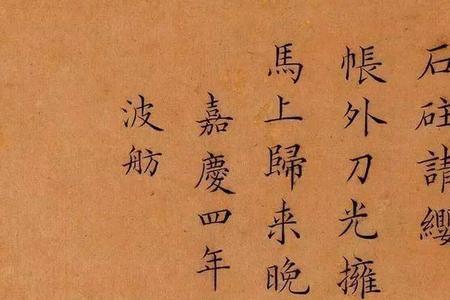 石砫請纓
帳外刀光擁
馬上歸来晚
嘉慶四年
波舫